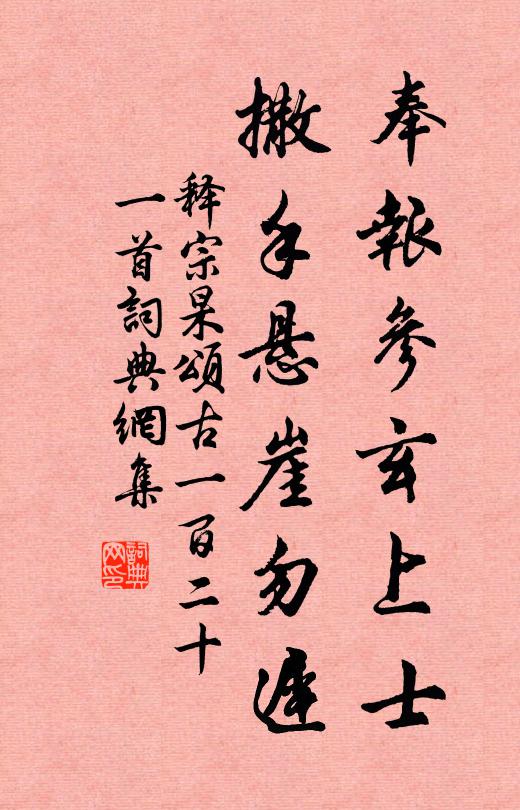 奉報參玄上士
撒手悬崖勿遲
释宗杲頌古一百二十
一首詞典網集
詞典
网印